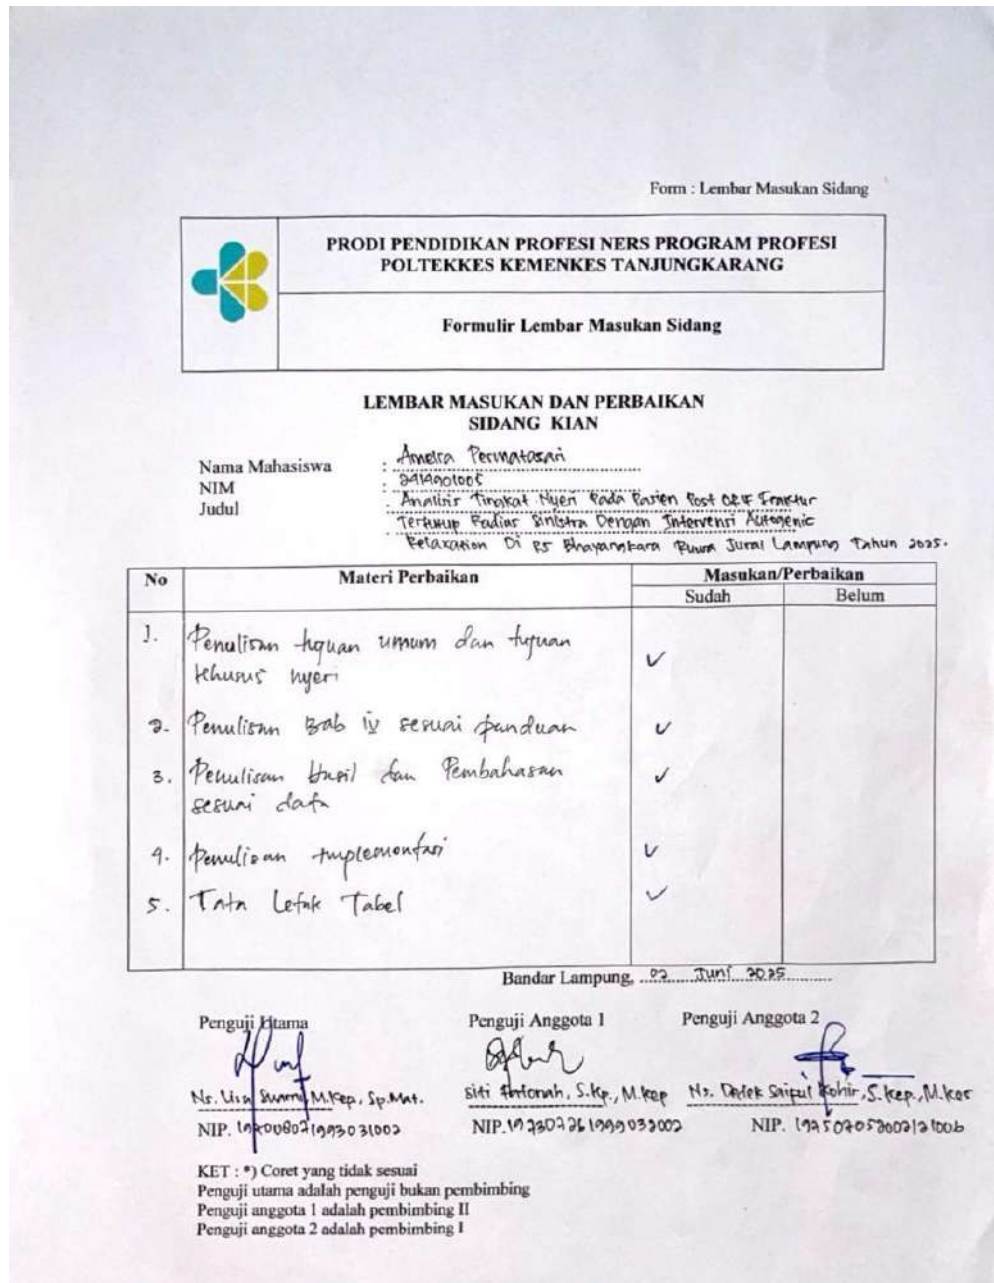 Form : Lembar Masukan Sidang
PRODI PENDIDIKAN PROFESI NERS PROGRAM PROFESI
POLTEKKES KEMENKES TANJUNGKARANG
Formulir Lembar Masukan Sidang
LEMBAR MASUKAN DAN PERBAIKAN
SIDANG KIAN
Nama Mahasiswa : Permatasari
NIM : 2414901005
Judul : Analisis Tingkat Nyeri Pada Pasien Post ORIF Fraktur
Tertutup Radius Sinistra Dengan Intervensi Autogenic
Relaxation Di RS Bhayangkara Ruwa Jurai Lampung Tahun 2025.
No Materi Perbaikan Masukan/Perbaikan
Sudah Belum
1. Penulisan tujuan umum dan tujuan
khusus nyeri ✓
2. Penulisan Bab iv sesuai panduan ✓
3. Penulisan Hasil dan Pembahasan ✓
sesuai data
4. Penulisan Implementasi ✓
5. Tata Letak Tabel ✓
Bandar Lampung, 02 Juni 2025
Penguji Utama Penguji Anggota 1 Penguji Anggota 2
Ns. Lisa M.Kep, Sp.Mat. Siti S.Kp., M.Kep Ns. Dedek Saiful Kohir, S.Kep., M.Kes
NIP. NIP. NIP.
KET : *) Coret yang tidak sesuai
Penguji utama adalah penguji bukan pembimbing
Penguji anggota 1 adalah pembimbing II
Penguji anggota 2 adalah pembimbing I